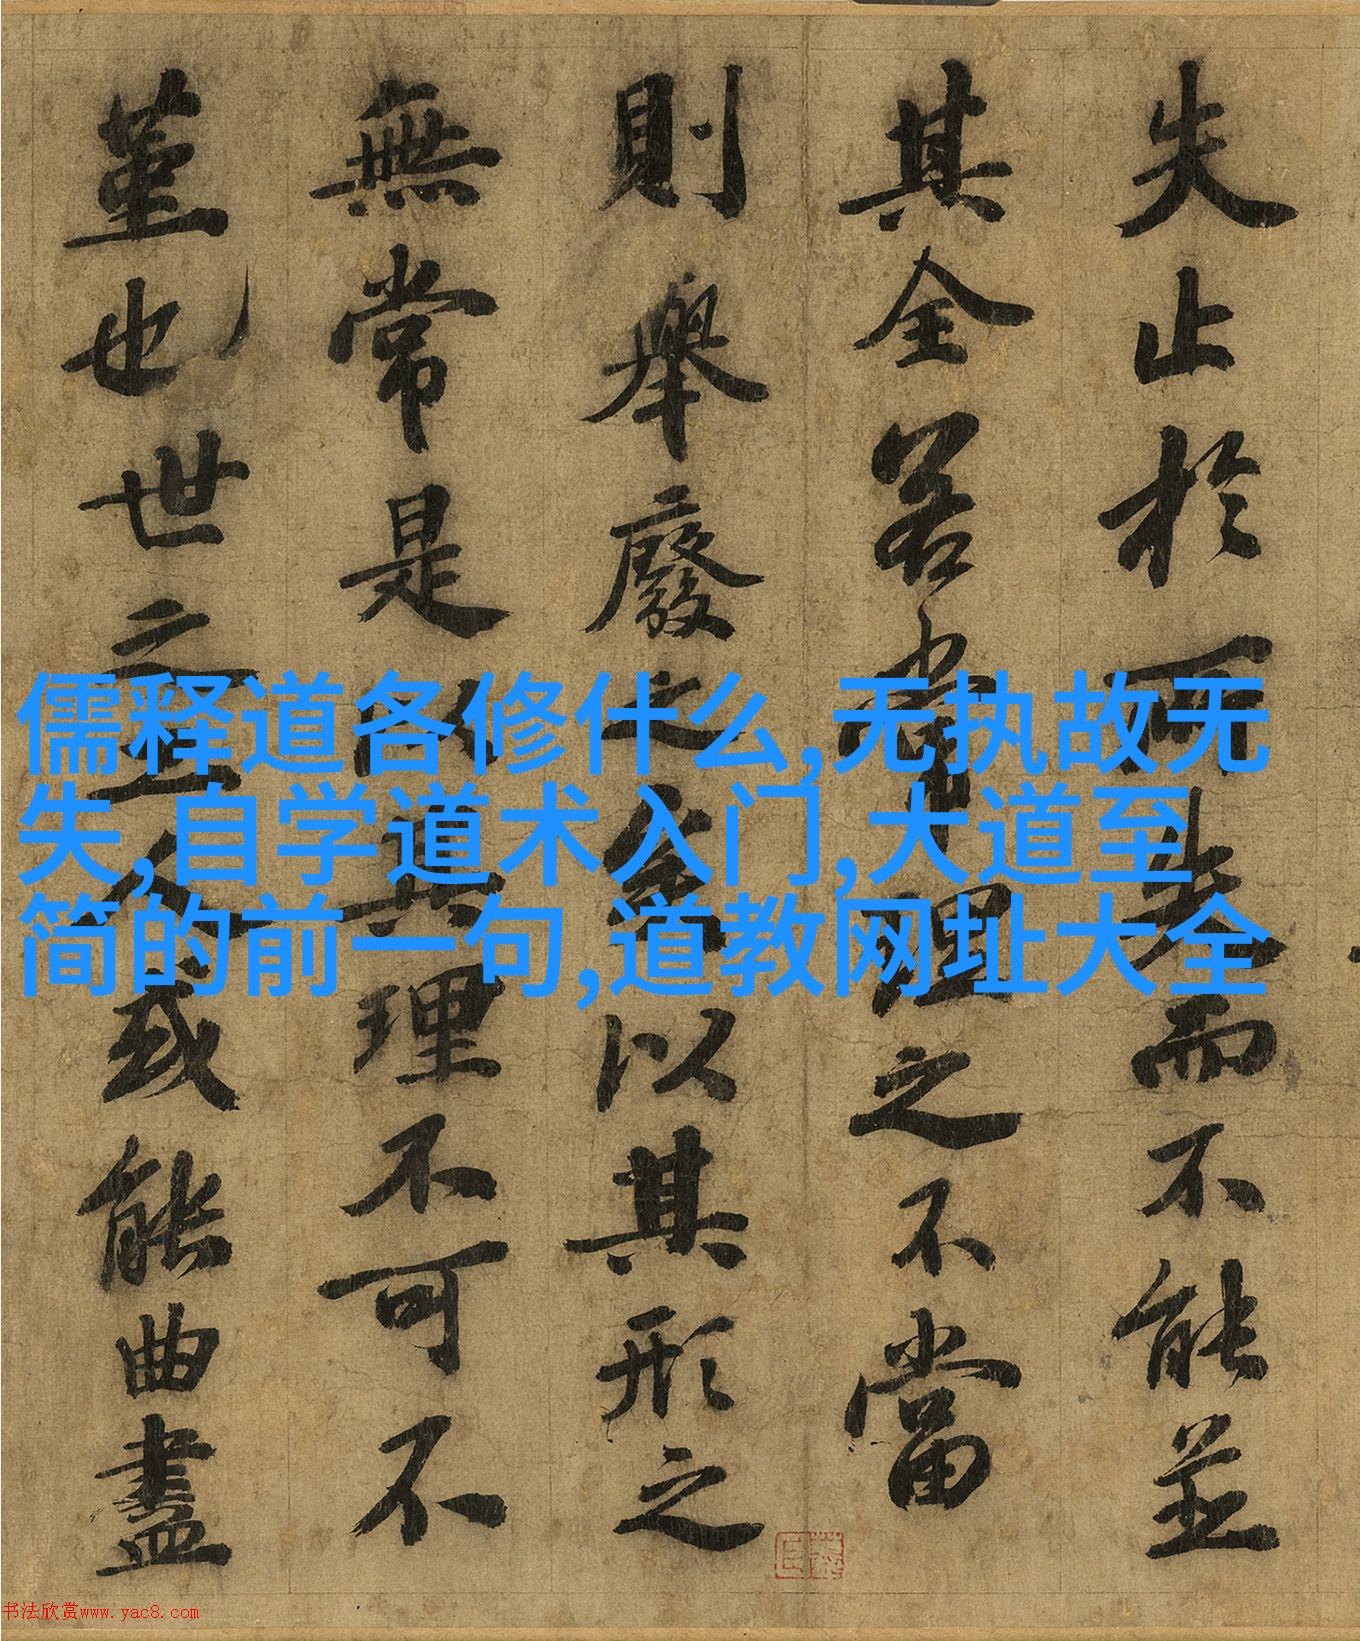 失止於所失而不能並
其全若常理之不當
則舉廢之矣以其形之
無常是以其理不可不
堇也世之工人或能曲盡
儒释道各修什么,无执故无
失,自学道术入门,大道至
简的前一句,道教网址大全
书法欣赏www.yac8.com